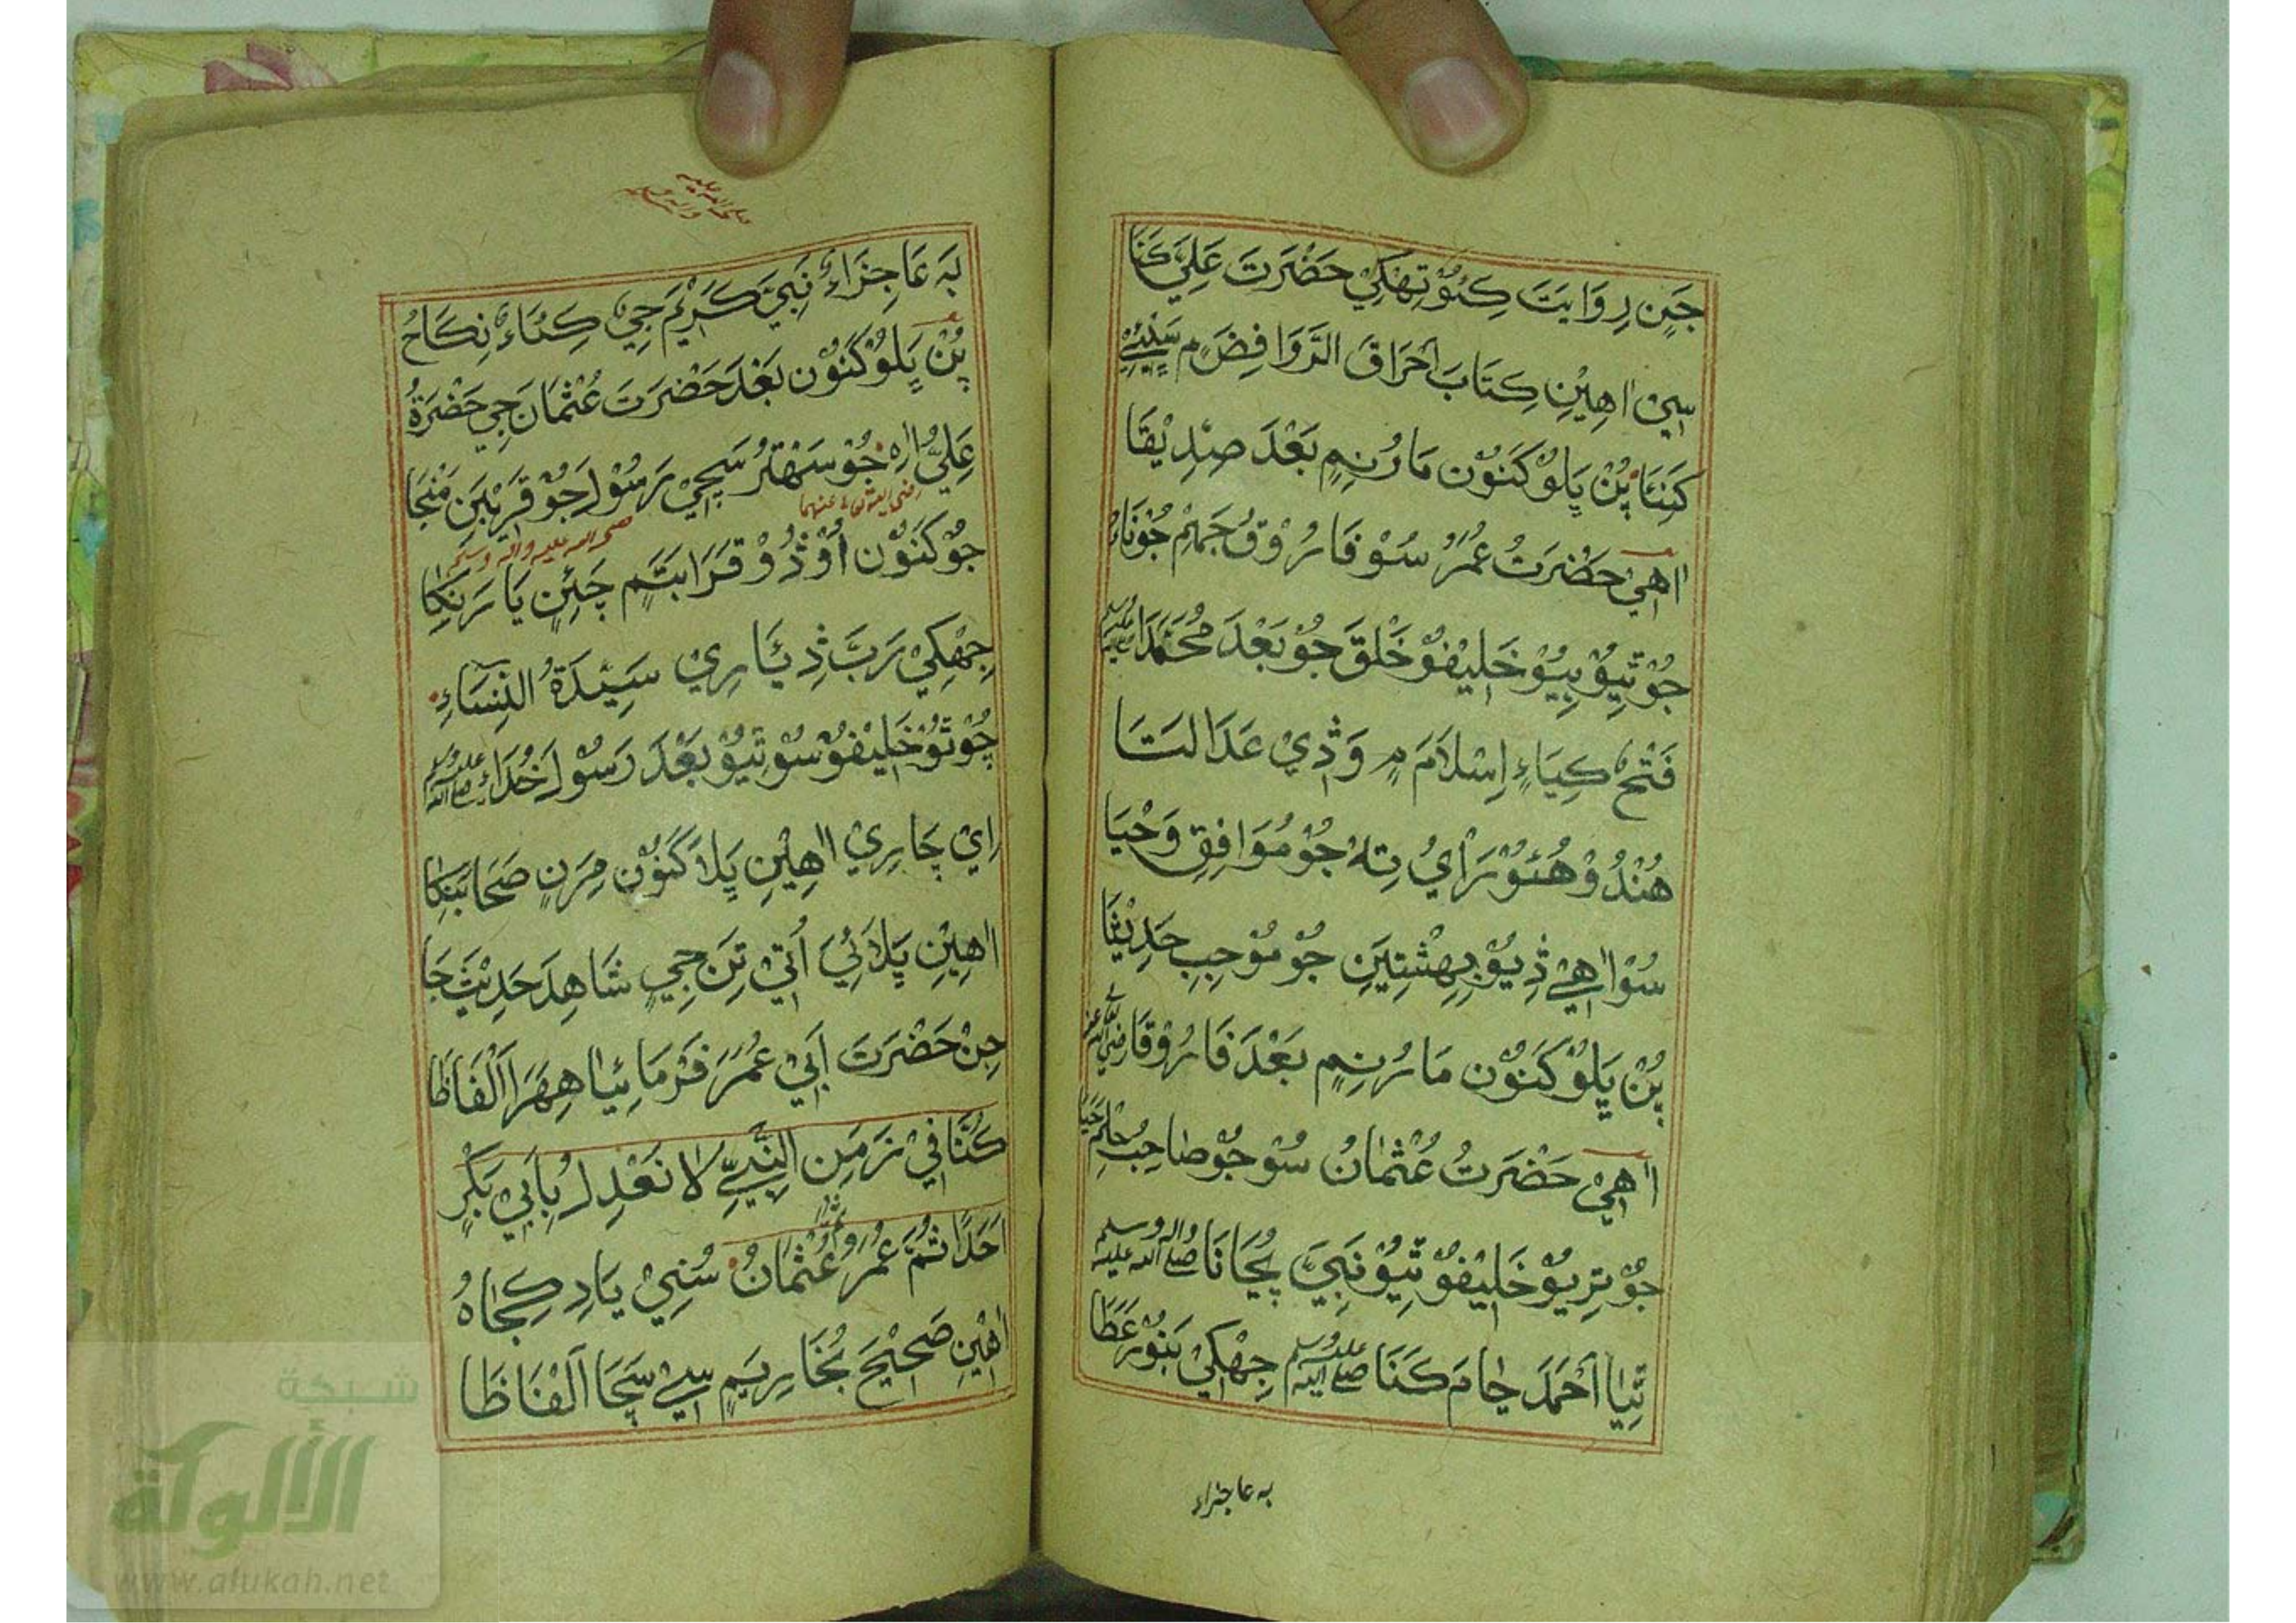 جَنٍ رِوَايَتَ كِئُوْ تِهْكِيْ حَضْرَتَ عَلِيَّ كَنَا
سِيْ اهِيْنِ كِتَابَ اَحْرَاقَ الرَّوَافِضَ مٍ
كَنِئَا پُنْ پِلُوْ كَنَوُنْ مَارُنِمٍ بَعْدَ صِدِيْقَا
اٰهِيْ حَضْرَتُ عُمَرُ سُوْ فَارُوْقُ
جُوْ تِيُوْ بِيُوْ خَلِيْفُوْ خَلْقَ جُوْ بَعْدَ مُحَمَّدَا
فَتْحُ كِيَاءٍ اِسْلَامَ مٍ وَڎِيْ عَدَالَتَا
هُنْدُوْ هُئُوْ رَايُ تِهٖ جُوْ مُوَافِقِ وَحْيَا
سُوْ اٰهِيْ ڎِيُوْ بِهِشْتِيَنِ جُوْ مُوْجِبِ حَدِيْثَا
پُنْ پِلُوْ كَنَوُنْ مَارُنِمٍ بَعْدَ فَارُوْقَا
اٰهِيْ حَضْرَتُ عُثْمَانُ سُوْ جُوْ صَاحِبُ حِلْمَ حَيَا
جُوْ تِرِيُوْ خَلِيْفُوْ تِيُوْ نَبِيَّ پُڄَانَا صلى الله عليه واله وسلم
تِيَا اَحْمَدَ ڄَامَ كَنَا صلى الله عليه وسلم جِهْكِيْ بَنُوْرَ عَطَا
بہ عاجزاء
بَہ عَاجِزَاءِ نَبِيَّ كَرِيْمَ جِيْ كِئَاءٍ نِكَاحُ
پُنْ پِلُوْ كَنَوُنْ بَعْدَ حَضْرَتَ عُثْمَانَ جِيْ حَضْرَةُ
عَلِيُّ اٰهِ جُوْ سَهْتَرُ سَچِيْ رَسُوْلَ جُوْ قَرِيْبَنِ مَنْجَا
رضي الله تعالى عنهما
جُوْ كَنَوُنْ اَوْڎُوْ قَرَابَتَمٍ چَئِنِ يَارَنِكَا
صلى الله عليه واله وسلم
جِهْكِيْ رَبَّ ڎِيَارِيْ سَيِّدَةُ النِّسَاءِ
چُوْتُوْ خَلِيْفُوْ سُوْ تِيُوْ بَعْدَ رَسُوْلَ خُدَاءِ صلى الله عليه وسلم
اِيْ چَارِيْ اٰهِيْنِ پِلَا كَنَوُنْ مِرَنٍ صَحَابَنِكَا
اٰهِيْنِ پِلَائِيَ اُتِيْ تِنَ جِيٍ شَاهِدَ حَدِيْثَ جَا
جِنْ حَضْرَتَ اَبِيْ عُمَرَ فَرْمَايَا هِهَرَا اَلْفَاظَا
كُنَّا فِيْ زَمَنِ النَّبِيِّ لَا نَعْدِلُ بِاَبِيْ بَكْرٍ
اَحَدًا ثُمَّ عُمَرُ وَ عُثْمَانُ سُنِيْ يَادِ كِجَاہُ
اٰهِيْنِ صَحِيْحَ بُخَارِيَمٍ سِيْ سَچَا اَلْفَاظَا
شبكة
الألوكة
www.alukah.net